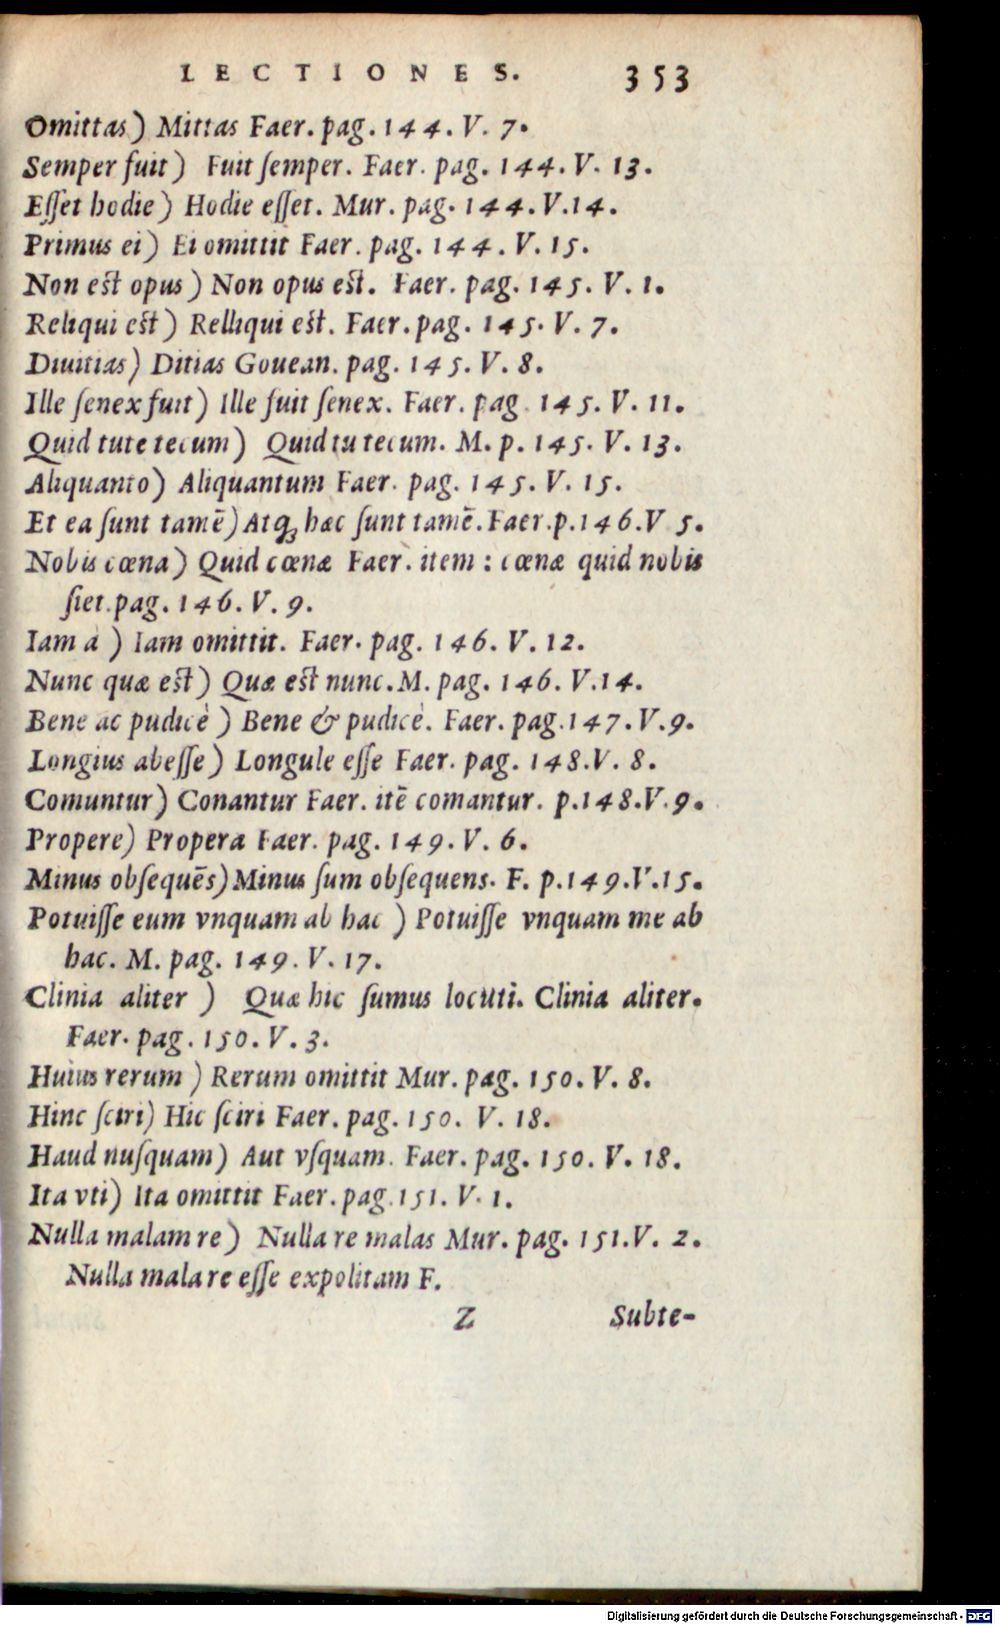 LECTIONES. 353
Omittas) Mittas Faer. pag. 144. V. 7.
Semper fuit) Fuit ſemper. Faer. pag. 144. V. 13.
Eſſet hodie) Hodie eſſet. Mur. pag. 144. V. 14.
Primus ei) Ei omittit Faer. pag. 144. V. 15.
Non est opus) Non opus est. Faer. pag. 145. V. 1.
Reliqui est) Relliqui est. Faer. pag. 145. V. 7.
Diuitias) Ditias Gouean. pag. 145. V. 8.
Ille ſenex fuit) Ille fuit ſenex. Faer. pag. 145. V. 11.
Quid tute tecum) Quid tu tecum. M. p. 145. V. 13.
Aliquanto) Aliquantum Faer. pag. 145. V. 15.
Et ea ſunt tamē) Atq₃ hæc ſunt tamē. Faer. p. 146. V 5.
Nobis cœna) Quid cœnæ Faer. item : cœnæ quid nobis
ſiet. pag. 146. V. 9.
Iam a) Iam omittit. Faer. pag. 146. V. 12.
Nunc quæ est) Quæ est nunc. M. pag. 146. V. 14.
Bene ac pudicè) Bene & pudicè. Faer. pag. 147. V. 9.
Longius abeſſe) Longule eſſe Faer. pag. 148. V. 8.
Comuntur) Conantur Faer. itē comantur. p. 148. V. 9.
Propere) Propera Faer. pag. 149. V. 6.
Minus obſequēs) Minus ſum obſequens. F. p. 149. V. 15.
Potuiſſe eum vnquam ab hac) Potuiſſe vnquam me ab
hac. M. pag. 149. V. 17.
Clinia aliter) Quæ hic ſumus locuti. Clinia aliter.
Faer. pag. 150. V. 3.
Huius rerum) Rerum omittit Mur. pag. 150. V. 8.
Hinc ſciri) Hic ſciri Faer. pag. 150. V. 18.
Haud nuſquam) Aut vſquam. Faer. pag. 150. V. 18.
Ita vti) Ita omittit Faer. pag. 151. V. 1.
Nulla malam re) Nulla re malas Mur. pag. 151. V. 2.
Nulla mala re eſſe expolitam F.
Z Subte-
Digitalisierung gefördert durch die Deutsche Forschungsgemeinschaft - DFG